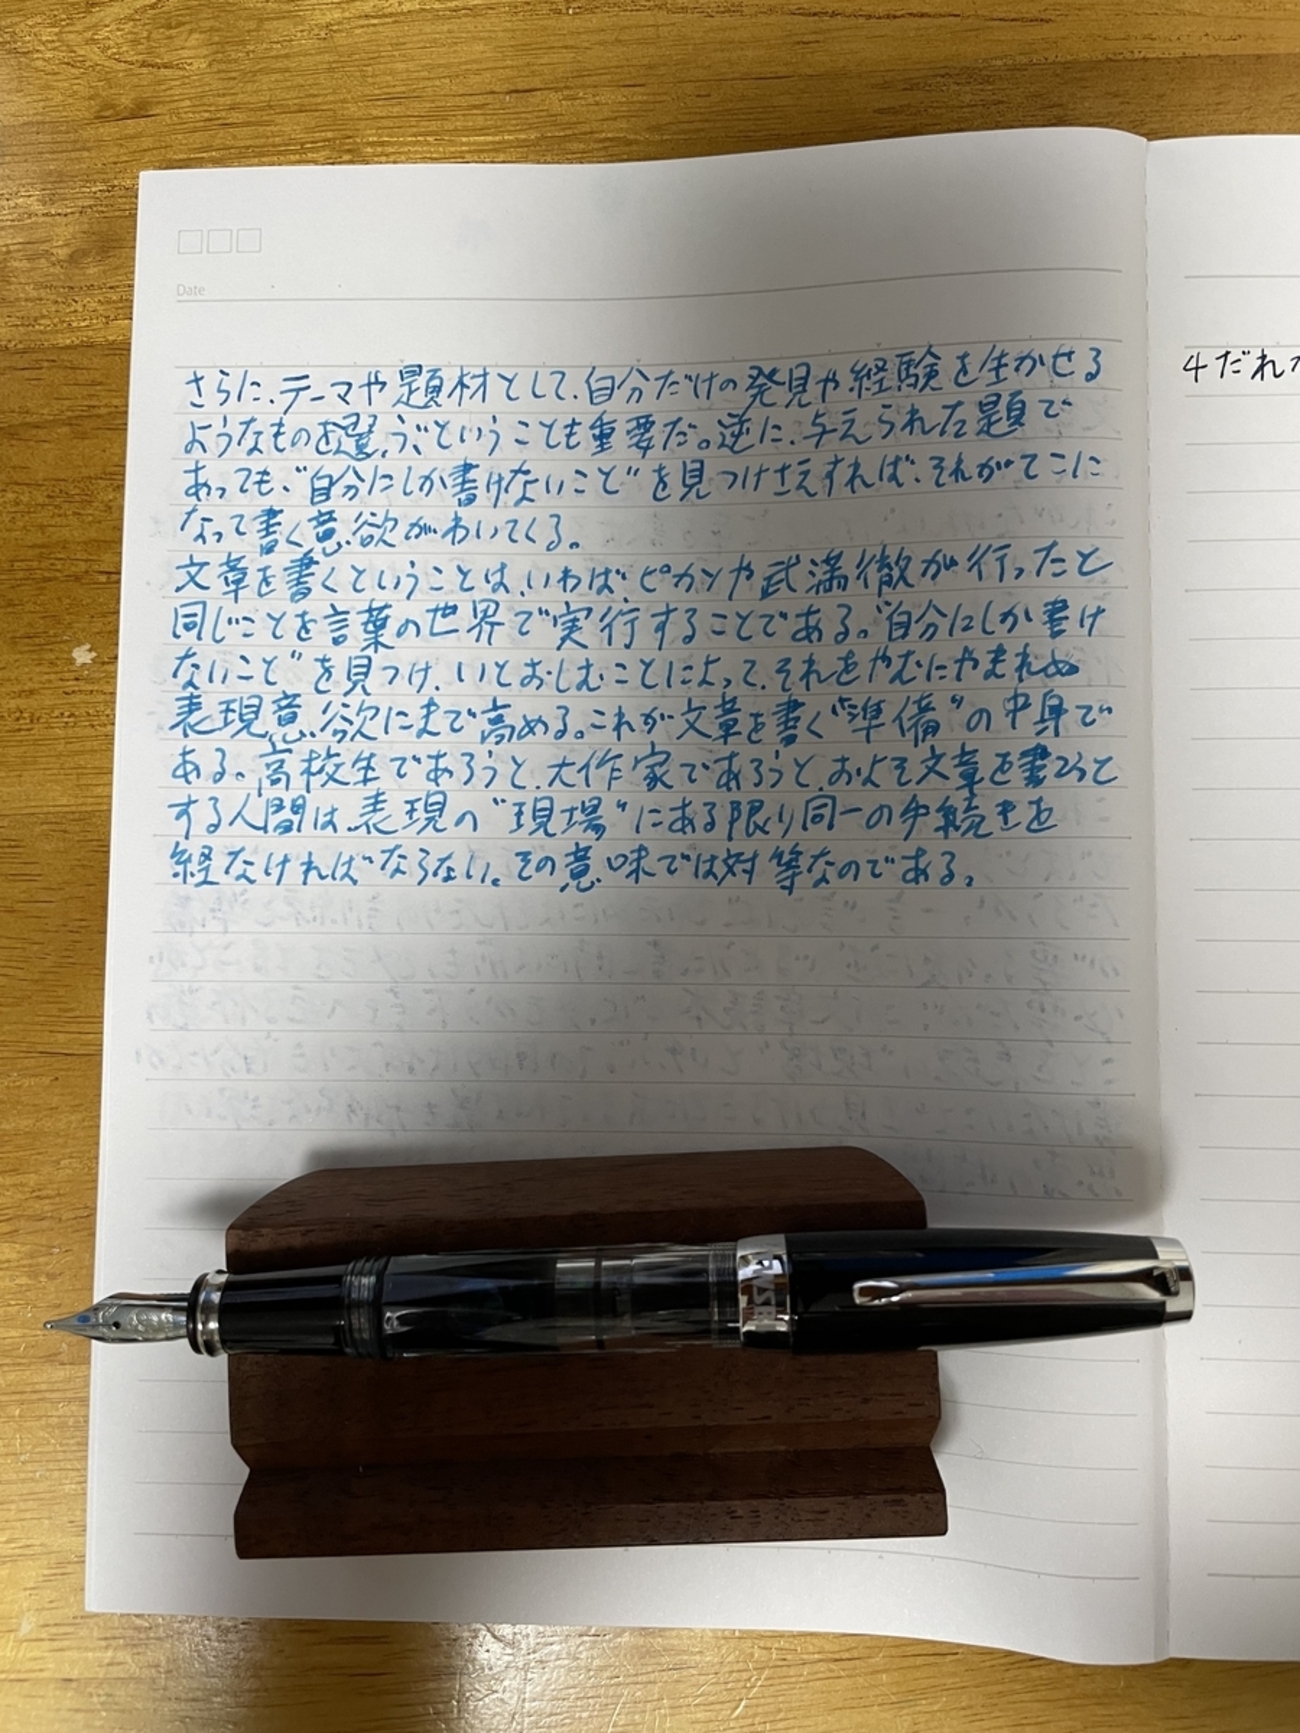 Date
さらに、テーマや題材として、自分だけの発見や経験を生かせる
ようなものを選ぶということも重要だ。逆に、与えられた題で
あっても、“自分にしか書けないこと”を見つけさえすれば、それがてこに
なって書く意欲がわいてくる。
文章を書くということは、いわば、ピカソや武満徹が行ったと
同じことを言葉の世界で実行することである。“自分にしか書け
ないこと”を見つけ、いとおしむことによって、それをやむにやまれぬ
表現意欲にまで高める。これが文章を書く“準備”の中身で
ある。高校生であろうと、大作家であろうと、およそ文章を書こうと
する人間は、表現の“現場”にある限り同一の手続きを
経なければならない。その意味では対等なのである。
4 だれ